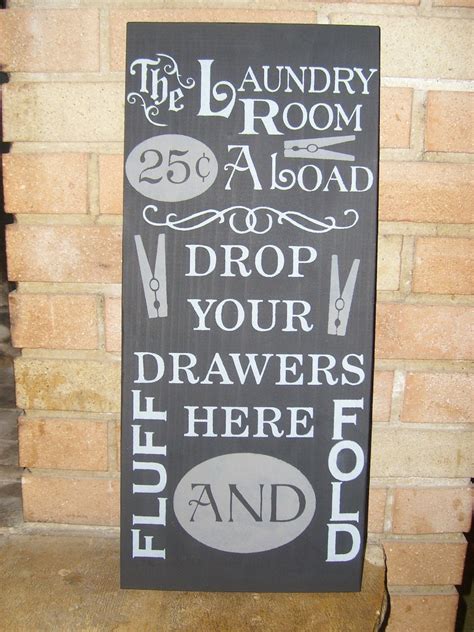 The LAUNDRY
ROOM
25¢ A LOAD
DROP
YOUR
DRAWERS
HERE
FLUFF
AND
FOLD